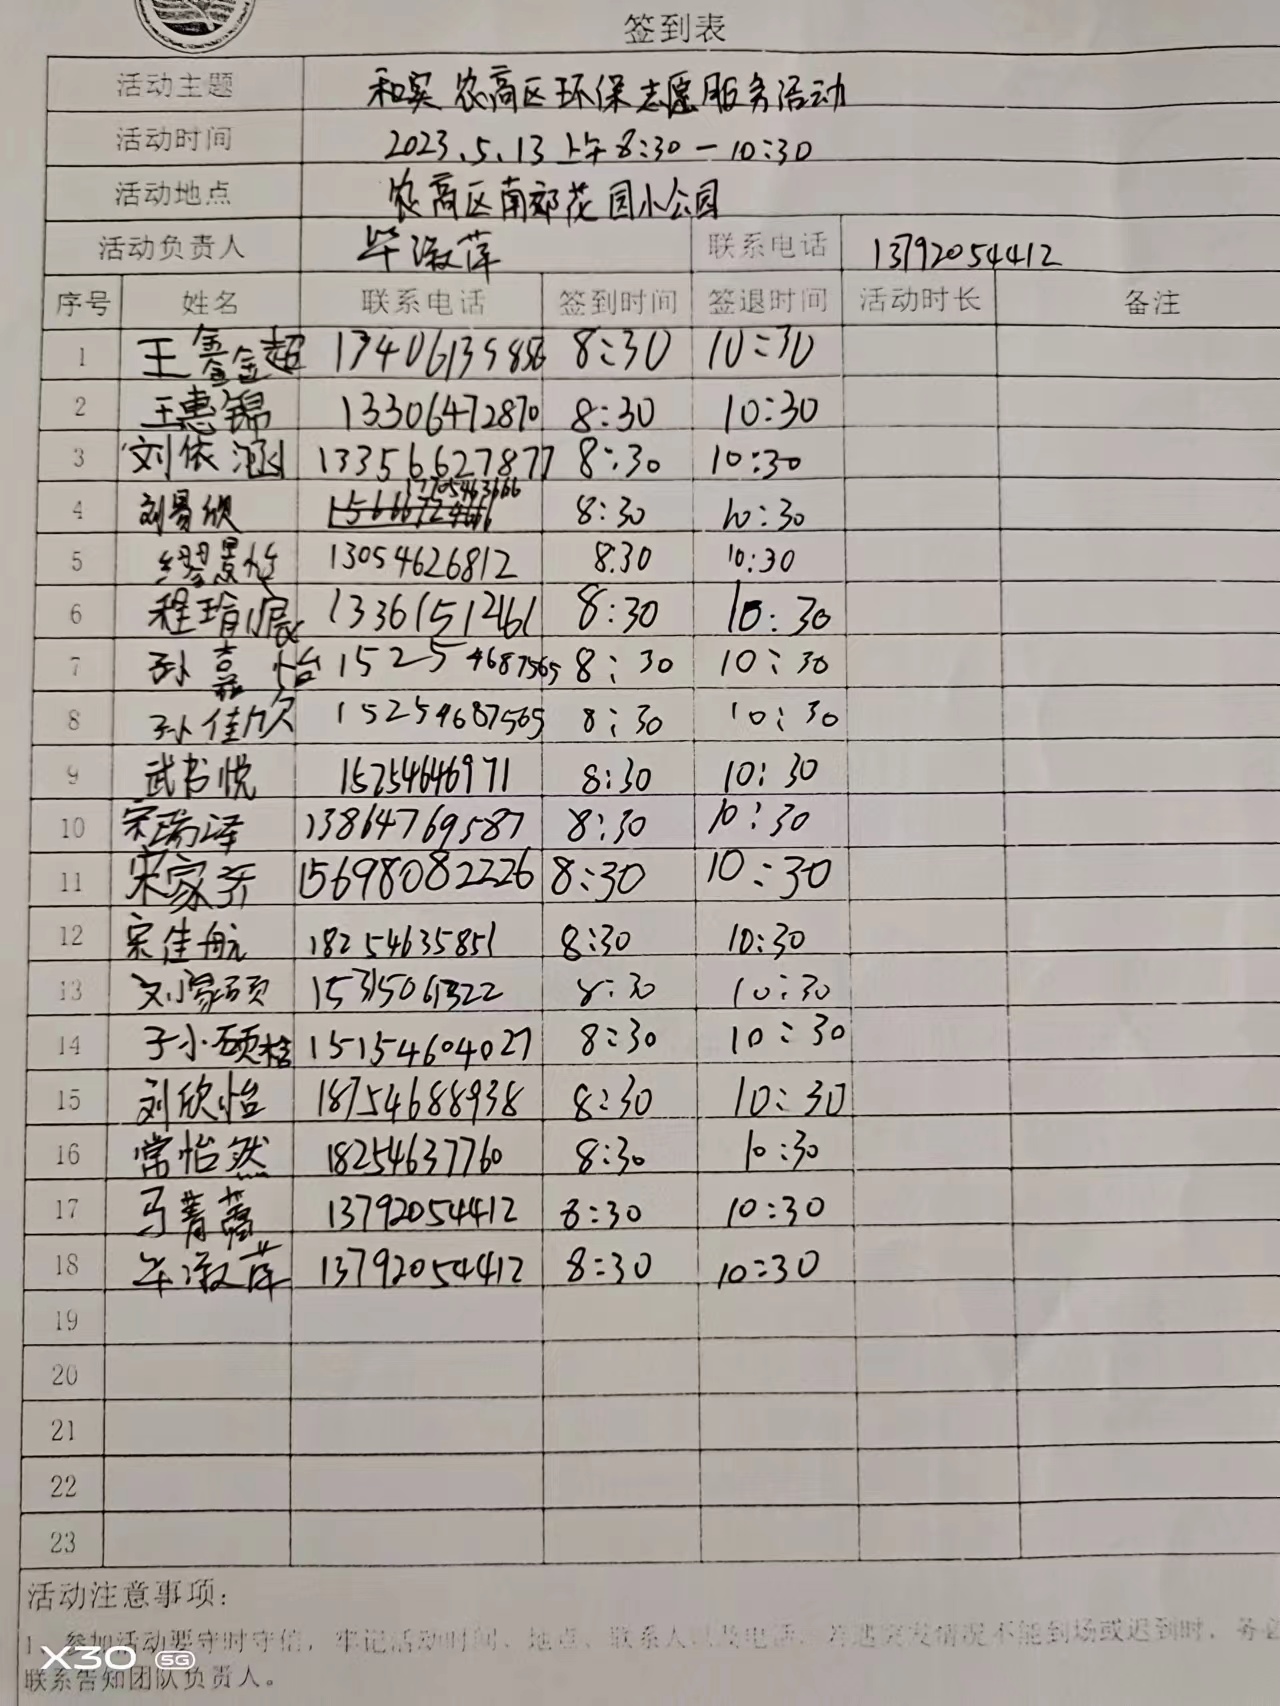 签到表
活动主题 和实 农高区环保志愿服务活动
活动时间 2023.5.13 上午8:30-10:30
活动地点 农高区南郊花园小公园
活动负责人 毕淑萍 联系电话 13792054412
序号 姓名 联系电话 签到时间 签退时间 活动时长 备注
1 王鑫金超 8:30 10:30
2 王惠锦 13306472870 8:30 10:30
3 刘依涵 13356627877 8:30 10:30
4 刘易欣 17705463666 8:30 10:30
5 缪景怡 13054626812 8.30 10:30
6 程 13361512461 8:30 10:30
7 孙嘉怡 15254687565 8:30 10:30
8 孙佳欣 15254687565 8:30 10:30
9 武书悦 15254646971 8:30 10:30
10 宋瑞泽 13864769587 8:30 10:30
11 宋家齐 15698082226 8:30 10:30
12 宋佳航 18254635851 8:30 10:30
13 刘家硕 15315061322 8:30 10:30
14 15154604027 8:30 10:30
15 刘欣怡 18754688938 8:30 10:30
16 常怡然 18254637760 8:30 10:30
17 马菁 13792054412 8:30 10:30
18 毕淑萍 13792054412 8:30 10:30
19
20
21
22
23
活动注意事项:
1、参加活动要守时守信，牢记活动时间、地点、联系人以及电话，若遇突发情况不能到场或迟到时，务必
联系告知团队负责人。
X30 5G